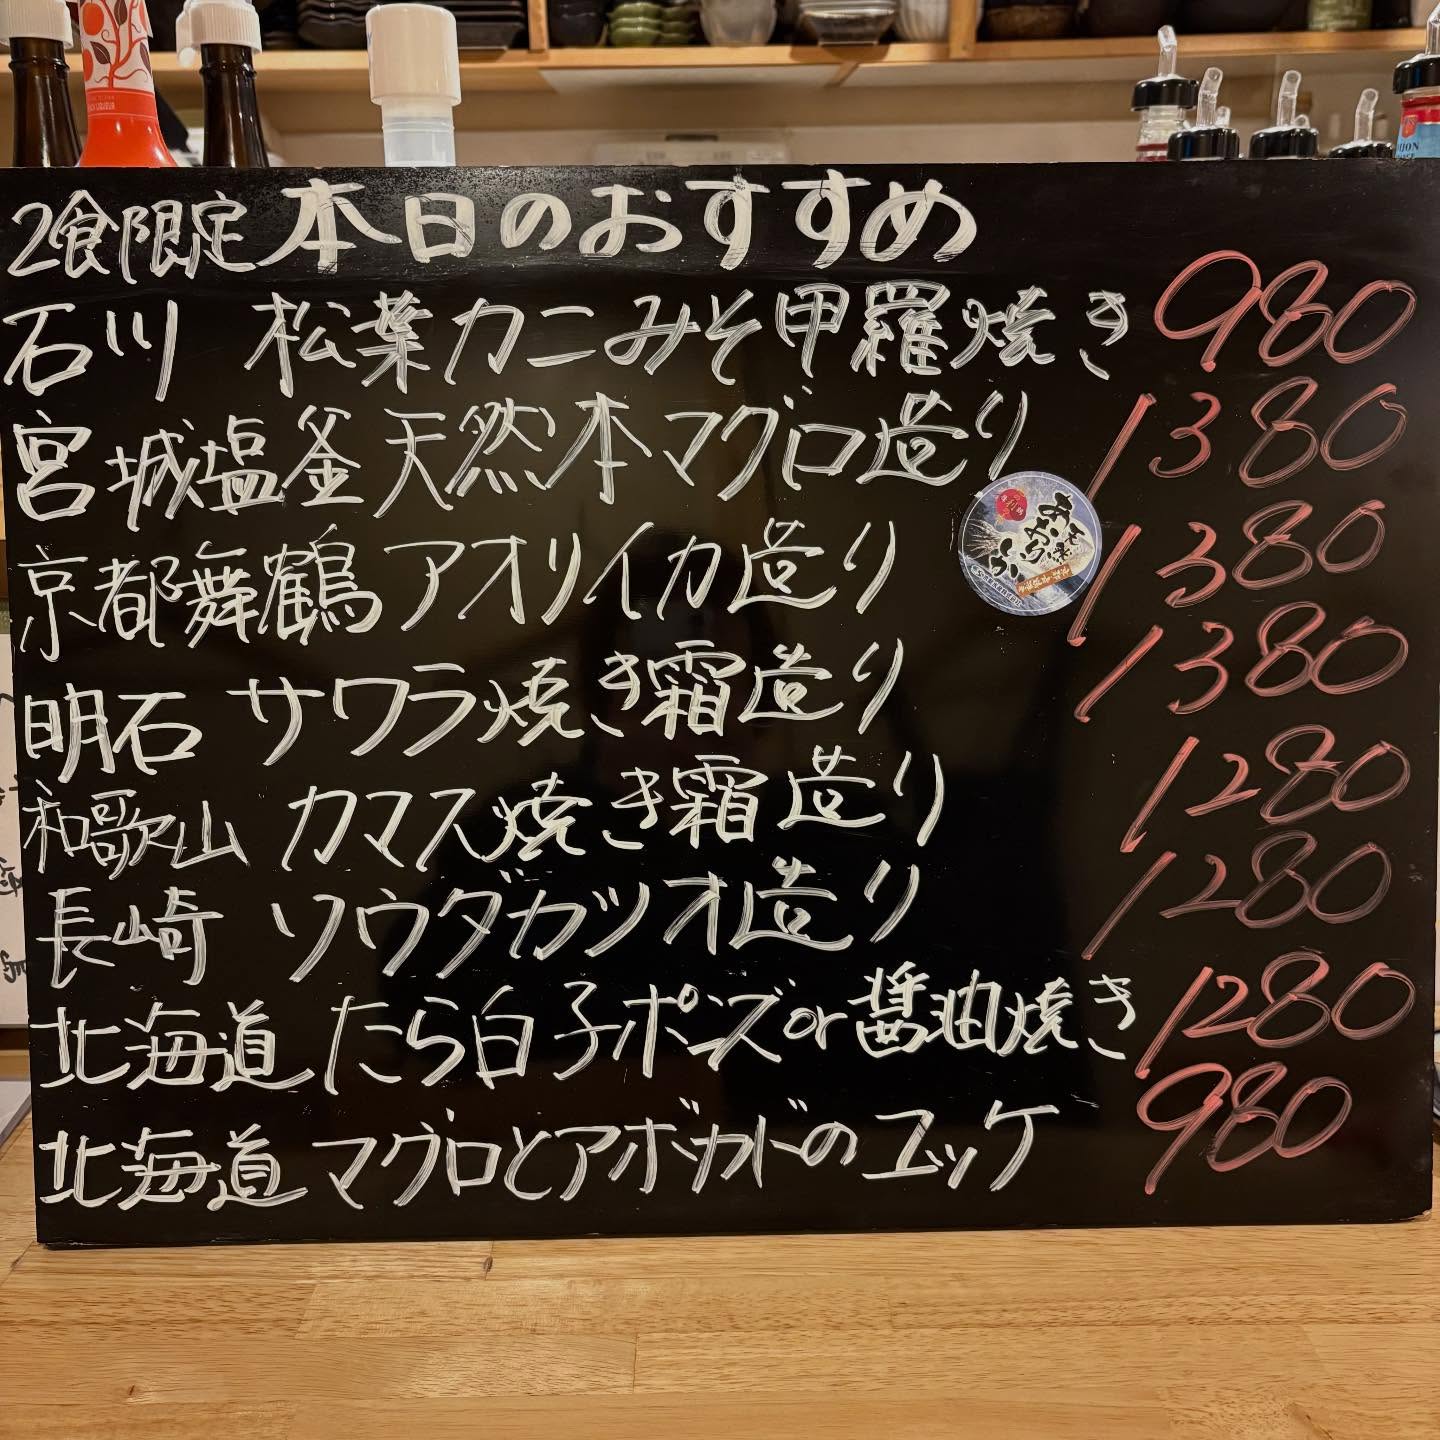 2食限定 本日のおすすめ
石川 松葉カニみそ甲羅焼き 980
宮城塩釜 天然本マグロ造り 1380
京都舞鶴 アオリイカ造り 1380
明石 サワラ焼き霜造り 1380
和歌山 カマス焼き霜造り 1280
長崎 ソウダガツオ造り 1280
北海道 たら白子ポンズor醤油焼き 1280
北海道 マグロとアボカドのユッケ 980